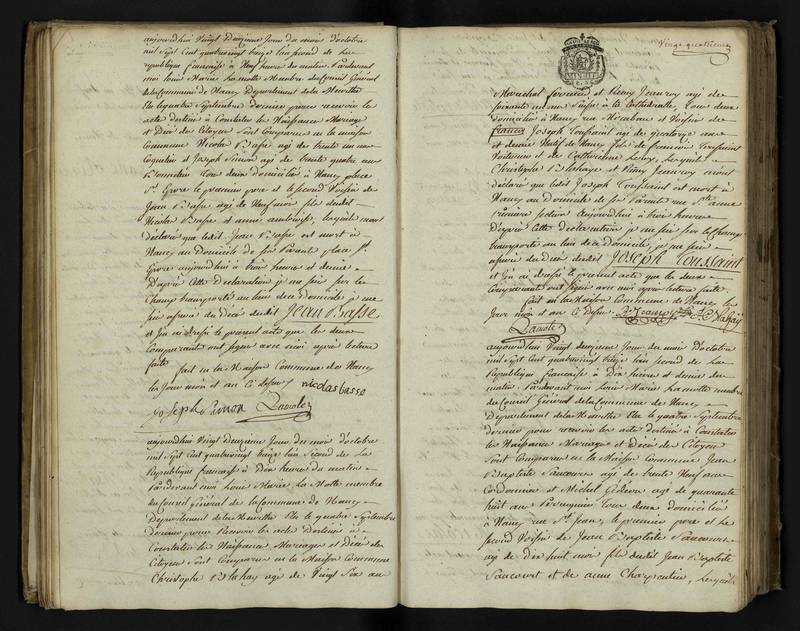 aujourdhui Vingt Deuxieme Jour du mois d'octobre
mil Sept Cent quatrevingt treize l'an second de La
republique française à Neuf heures du matin Pardevant
moi Louis Marie Lamotte Membre du Conseil Général
de la Commune de Nancy Departement de la Meurthe
Elu le quatre Septembre dernier pour recevoir les
acte destiné à Constater les Naissance Mariage
et Décé des Citoyen Sont Comparus en la maison
Commune Nicolas Basse agé de trente un ans
Coquetier et Joseph Simon agé de trente quatre ans
tous deux domiciliés à Nancy place
St. Epvre le premier pere et le second Voisin de
Jean Basse agé de Neuf mois fils dudit
Nicolas Basse et anne lesquels m'ont
déclaré que ledit Jean Basse est mort à
Nancy au domicile de ses Parents place St.
Epvre aujourdhui à trois heures et demie
D'après Cette Declaration je me suis sur le
Champ transporté au lieu de ce domicile je me
suis assuré du Décé dudit Jean Basse
et j'en ai dressé le present acte que les deux
Comparants ont signé avec moi après lecture
faite
fait en la Maison Commune de Nancy
les Jour mois et an Ci dessus nicolas basse
joseph Simon Lamotte
aujourdhui Vingt Deuxieme Jour du mois d'octobre
mil Sept Cent quatrevingt treize l'an Second de La
Republique française à Dix heures du matin
Pardevant moi Louis Marie La Motte membre
du Conseil Général de la Commune de Nancy
Departement de la Meurthe Elu le quatre Septembre
dernier pour Recevoir les acte destiné à
Constater les Naissance, Mariages et Décé des
Citoyen Sont Comparus en la Maison Commune
Christophe Blahay agé de Vingt Six ans
Vingt quatrieme
Maréchal ferrant et Remy Jeanroy agé de
soixante un ans Suisse à la Cathedralle, tous deux
domiciliés à Nancy rue et Voisin de
francois Joseph Toussaint agé de quatorze ans
et demie Natif de Nancy fils de francois Toussaint
Voiturier et de Catherine Leroy, Lesquels
Christophe Blahaye et Remy Jeanroy m'ont
déclaré que ledit Joseph Toussaint est mort à
Nancy au domicile de ses Parents rue Ste anne
section Aujourdhui à trois heures
D'après Cette déclaration je me suis sur le champ
transporté au lieu de ce Domicile, je me suis
assuré du Décé dudit Joseph Toussaint
et J'en ai dressé le present acte que les deux
Comparants ont signé avec moi après lecture faite
fait en la Maison Commune de Nancy les
Jour mois et an Ci dessus R Jeanroy C Blahay
Lamotte
aujourdhui Vingt deuxieme Jour du mois d'octobre
mil Sept Cent quatrevingt treize l'an second de La
Republique française à Dix heures et demie du
matin Pardevant moi Louis Marie Lamotte membre
du Conseil Général de la Commune de Nancy
Departement de la Meurthe Elu le quatre Septembre
dernier pour recevoir les acte destiné à Constater
les Naissance Mariage et Décé des Citoyen
Sont Comparus en la Maison Commune Jean
Baptiste Saucourt agé de trente Neuf ans
Cordonnier et Michel Gédéon agé de quarante
huit ans Perruquier tous deux domiciliés
à Nancy rue St. Jean, le premier pere et le
second Voisin de Jean Baptiste Saucourt
agé de dix huit mois fils dudit Jean Baptiste
Saucourt et de anne Charpentier, lesquels